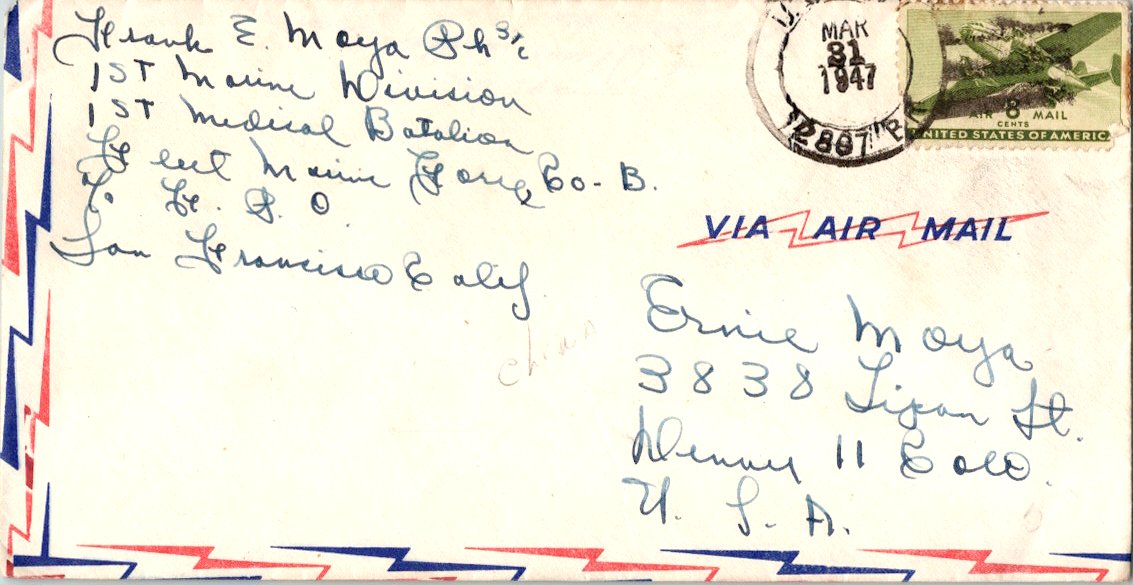 Frank E. Moya Ph 3/c
1ST Marine Division
1ST Medical Batalion
Fleet Marine Force, Co-B.
F. P. O.
San Francisco Calif
MAR
31
1947
12867
AIR 8 MAIL
CENTS
UNITED STATES OF AMERICA
VIA AIR MAIL
china
Ernie Moya
3838 Lipan St.
Denver 11 Colo.
U. S. A.